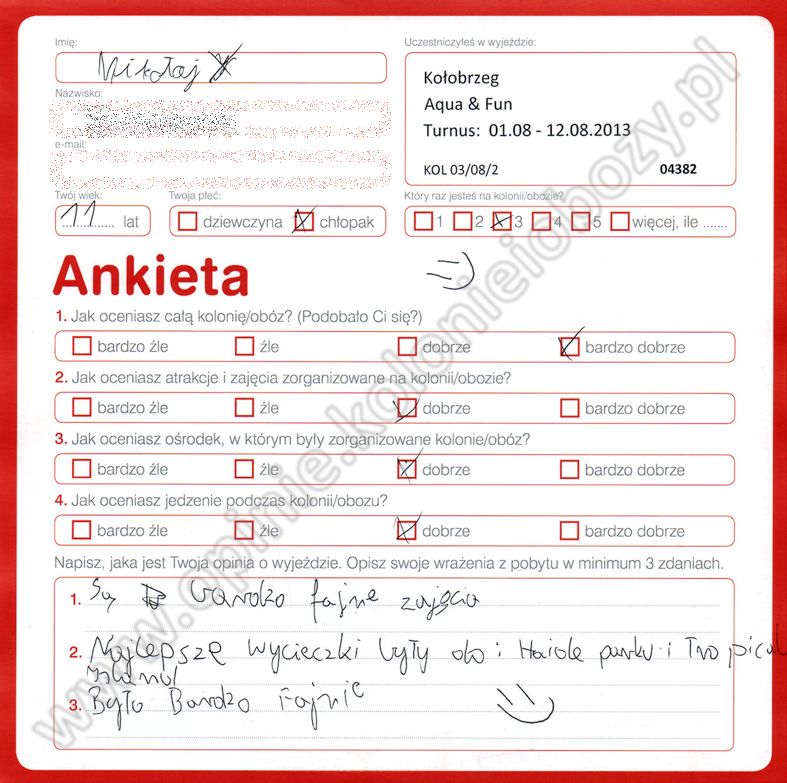 Imię: Uczestniczyłeś w wyjeździe:
Mikołaj
Kołobrzeg
Aqua & Fun
Turnus: 01.08 - 12.08.2013
KOL 03/08/2 04382
Nazwisko:
e-mail:
Twój wiek: Twoja płeć: Który raz jesteś na kolonii/obozie?
11 lat dziewczyna chłopak 1 2 3 4 5 więcej, ile .......
Ankieta =)
1. Jak oceniasz całą kolonię/obóz? (Podobało Ci się?)
bardzo źle źle dobrze bardzo dobrze
2. Jak oceniasz atrakcje i zajęcia zorganizowane na kolonii/obozie?
bardzo źle źle dobrze bardzo dobrze
3. Jak oceniasz ośrodek, w którym były zorganizowane kolonie/obóz?
bardzo źle źle dobrze bardzo dobrze
4. Jak oceniasz jedzenie podczas kolonii/obozu?
bardzo źle źle dobrze bardzo dobrze
Napisz, jaka jest Twoja opinia o wyjeździe. Opisz swoje wrażenia z pobytu w minimum 3 zdaniach.
1. Są bardzo fajne zajęcia
2. Najlepsze wycieczki były do : Haide parku i Tropical
Island
3. Było Bardzo Fajnie
www.opinie.kolonieiobozy.pl